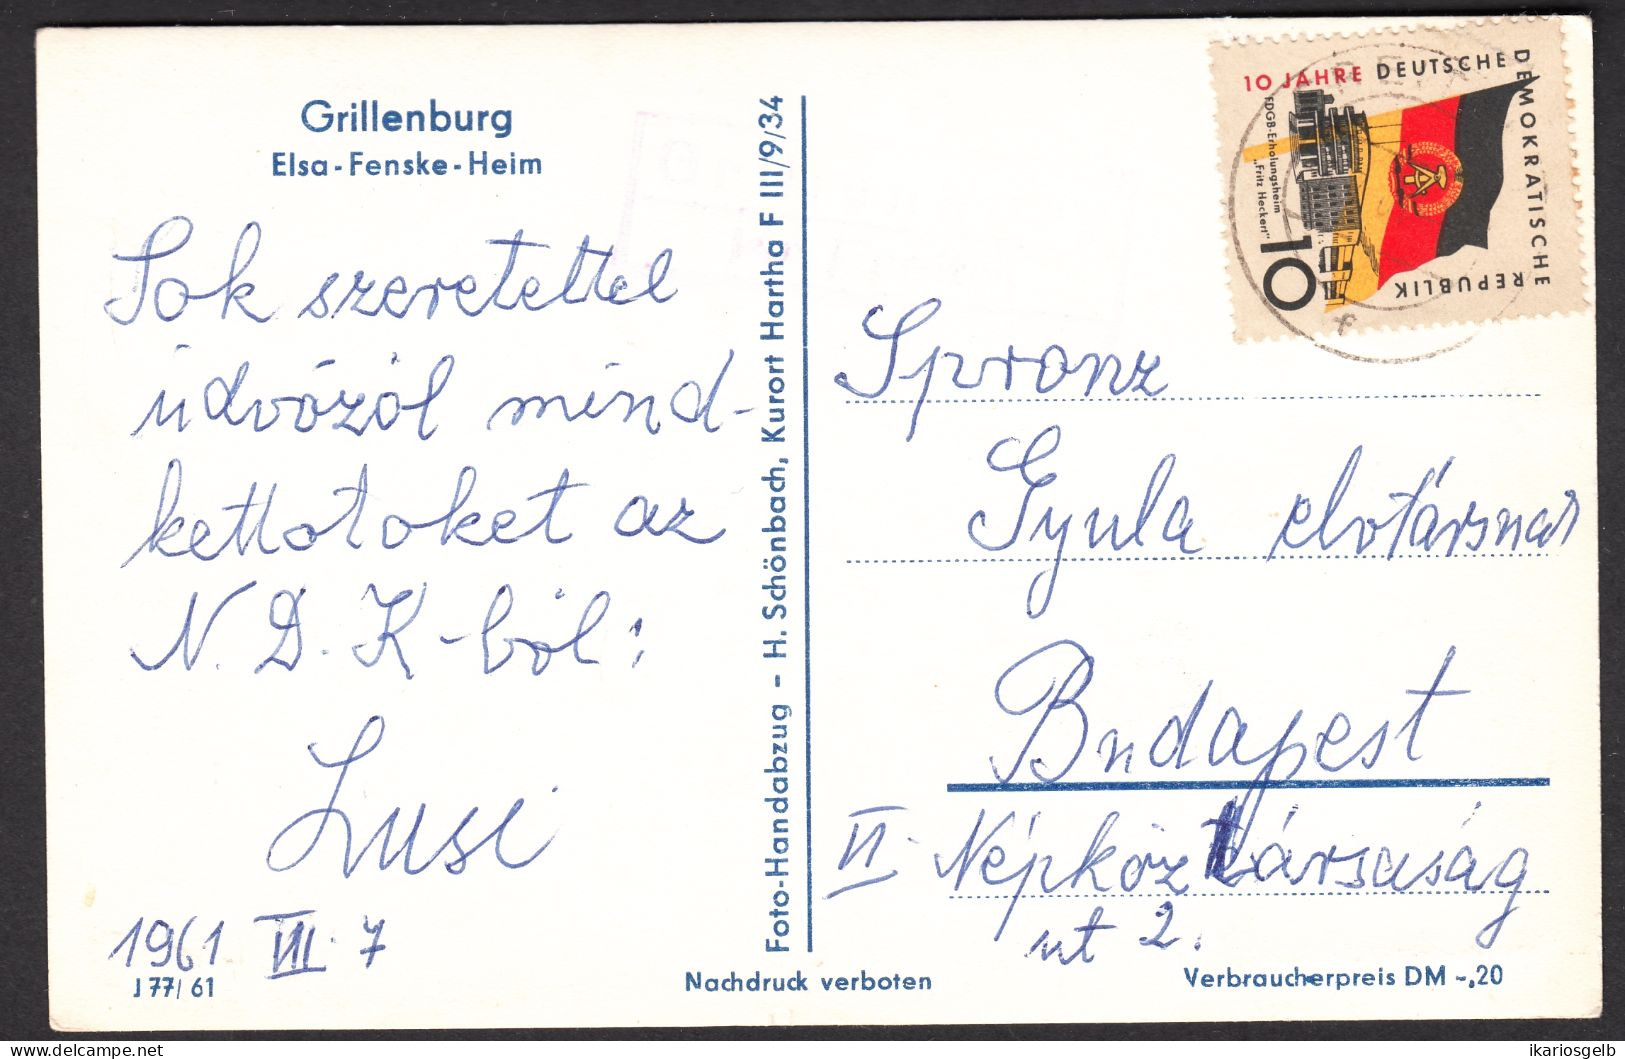 Grillenburg
Elsa-Fenske-Heim
Sok szeretettel
üdvözöl mind-
kettőtöket az
N.D.K-ból:
Lusi
1961 VIII. 7
J 77/61
Foto-Handabzug - H. Schönbach, Kurort Hartha F III/9/34
Nachdruck verboten
10 JAHRE DEUTSCHE DEMOKRATISCHE REPUBLIK
FDGB-Erholungsheim
„Fritz Heckert"
10
Spronz
Gyula elvtársnak
Budapest
VI. Népköztársaság
út 2.
Verbraucherpreis DM -,20
delcampe.net
ikariosgelb